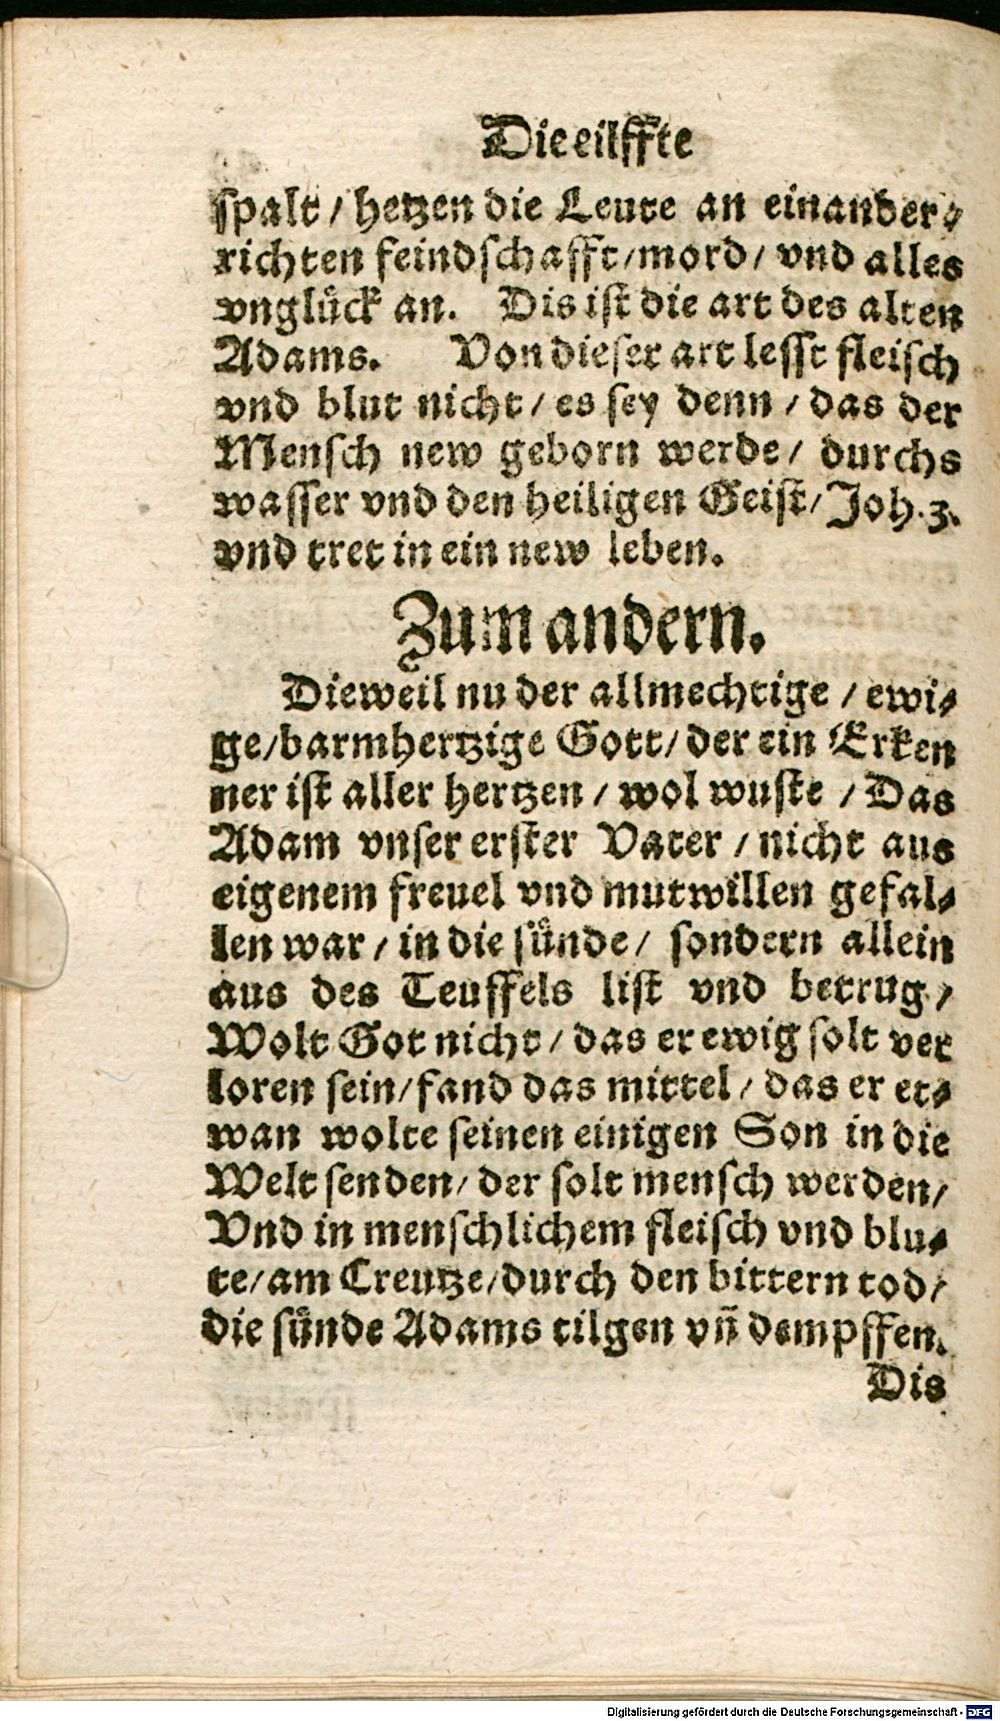 Die eilffte
spalt / hetzen die Leute an einander /
richten feindschafft / mord / vnd alles
vnglück an. Dis ist die art des alten
Adams. Von dieser art lesst fleisch
vnd blut nicht / es sey denn / das der
Mensch new geborn werde / durchs
wasser vnd den heiligen Geist / Joh. 3.
vnd tret in ein new leben.
Zum andern.
Dieweil nu der allmechtige / ewi-
ge / barmhertzige Gott / der ein Erken
ner ist aller hertzen / wol wuste / Das
Adam vnser erster Vater / nicht aus
eigenem freuel vnd mutwillen gefal-
len war / in die sünde / sondern allein
aus des Teuffels list vnd betrug /
Wolt Got nicht / das er ewig solt ver
loren sein / fand das mittel / das er et-
wan wolte seinen einigen Son in die
Welt senden / der solt mensch werden /
Vnd in menschlichem fleisch vnd blu-
te / am Creutze / durch den bittern tod /
die sünde Adams tilgen vñ dempffen.
Dis
Digitalisierung gefördert durch die Deutsche Forschungsgemeinschaft - DFG